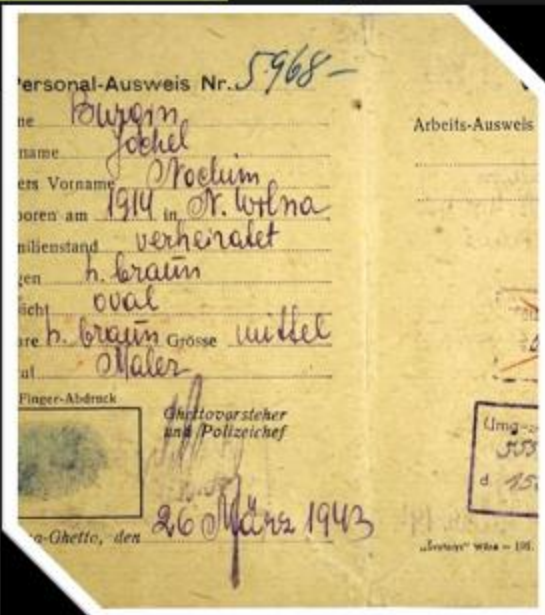 ersonal-Ausweis Nr. 5968-
ne Burgin
name Jochel
ers Vorname Nochim
boren am 1914 in N. Wilna
milienstand verheiratet
gen h. braun
icht oval
are h. braun Grösse mittel
Maler
Finger-Abdruck
Ghettovorsteher
und Polizeichef
a-Ghetto, den 26 März 1943
Arbeits-Ausweis
Umg-
d.
Wilna